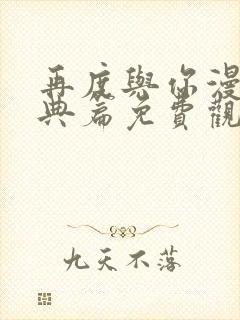 再度與你漫
典篇免費觀
九天不落